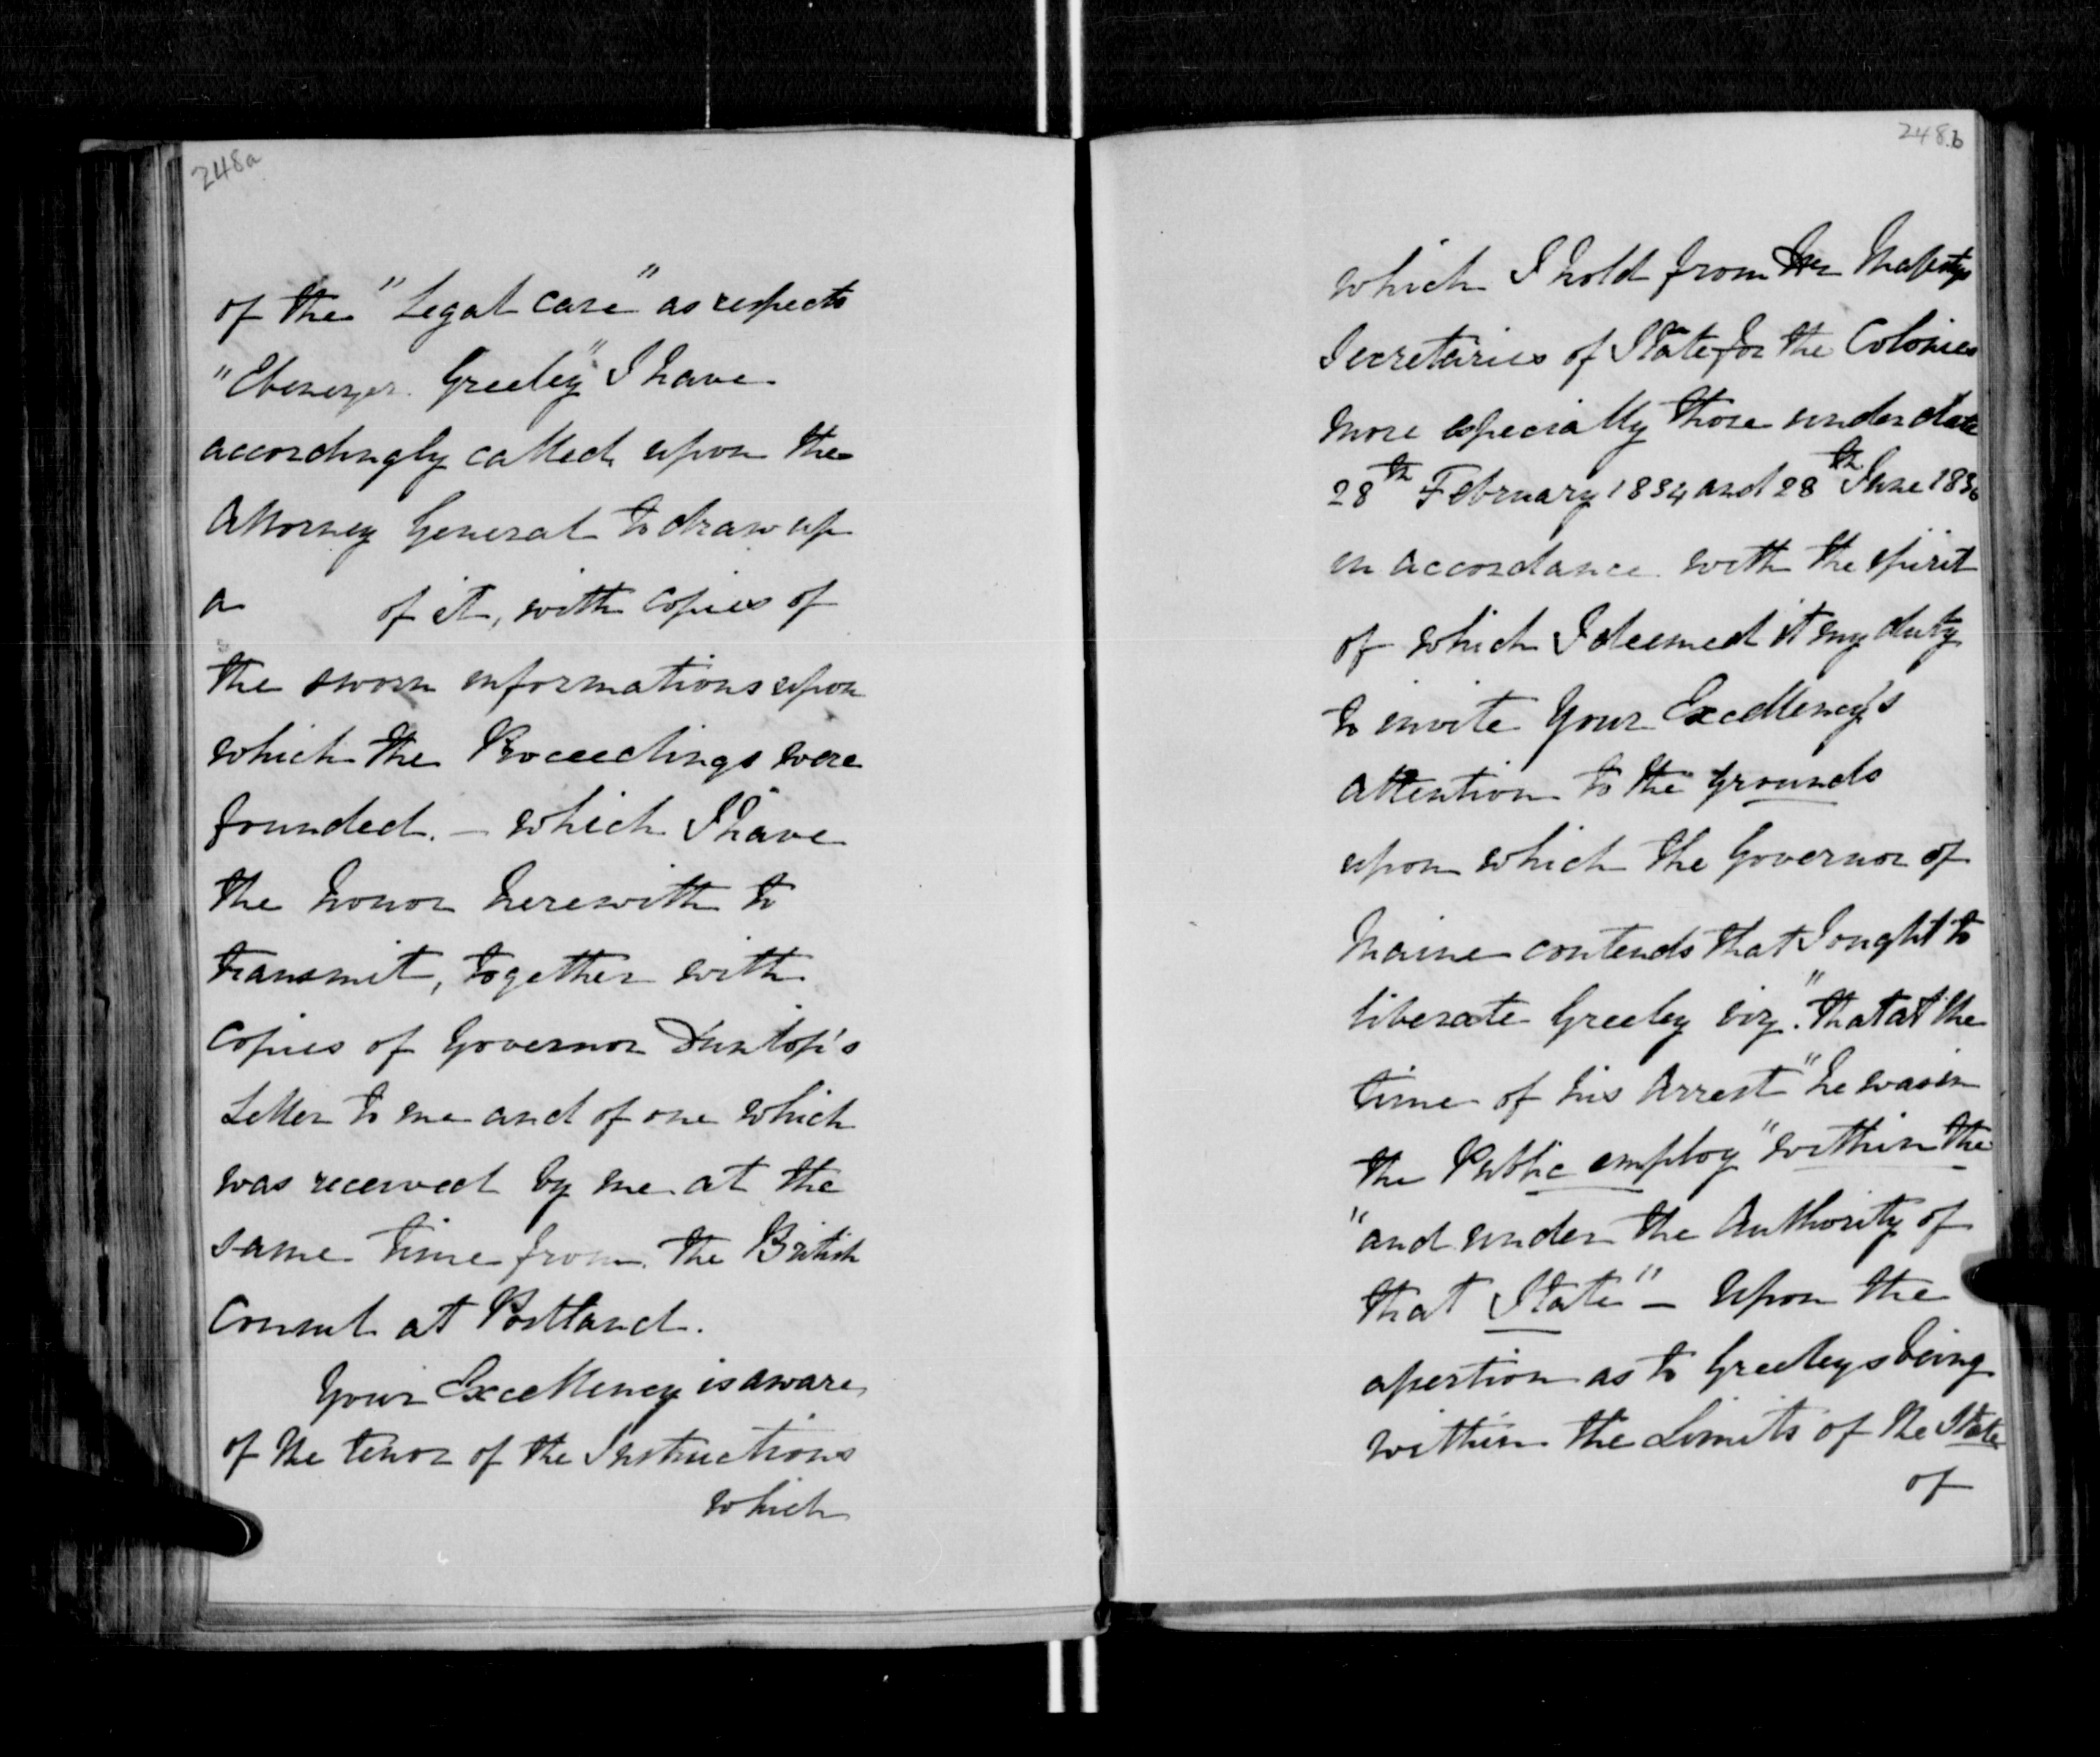 248a
of the "Legal Case" as respects
"Ebenezer Greeley" I have
accordingly called upon the
Attorney General to draw up
a of it, with copies of
the sworn informations upon
which the Proceedings were
founded. — which I have
the honor herewith to
transmit, together with
copies of Governor Dunlop's
Letter to me and of one which
was received by me at the
same time from the British
Consul at Portland.
Your Excellency is aware
of the tenor of the Instructions
which
248b
which I hold from Her Majestys
Secretaries of State for the Colonies
more especially those under date
28th February 1834 and 28th June 1836
in accordance with the spirit
of which I deemed it my duty
to invite Your Excellency's
attention to the grounds
upon which the Governor of
Maine contends that I ought to
liberate Greeley viz. "that at the
time of his Arrest "he was in
the Public employ "within the
"and under the Authority of
that State" — Upon the
assertion as to Greeleys being
within the Limits of the State
of